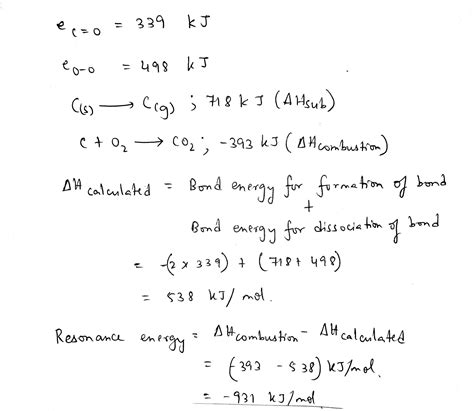 e C=O = 339 kJ
e O-O = 498 kJ
C(s) ⟶ C(g) ; 718 kJ (ΔHsub)
C + O2 ⟶ CO2 ; -393 kJ (ΔHcombustion)
ΔH calculated = Bond energy for formation of bond
+
Bond energy for dissociation of bond
= -(2 x 339) + (718 + 498)
= 538 kJ/mol.
Resonance energy = ΔHcombustion - ΔHcalculated
= (-393 - 538) kJ/mol.
= -931 kJ/mol